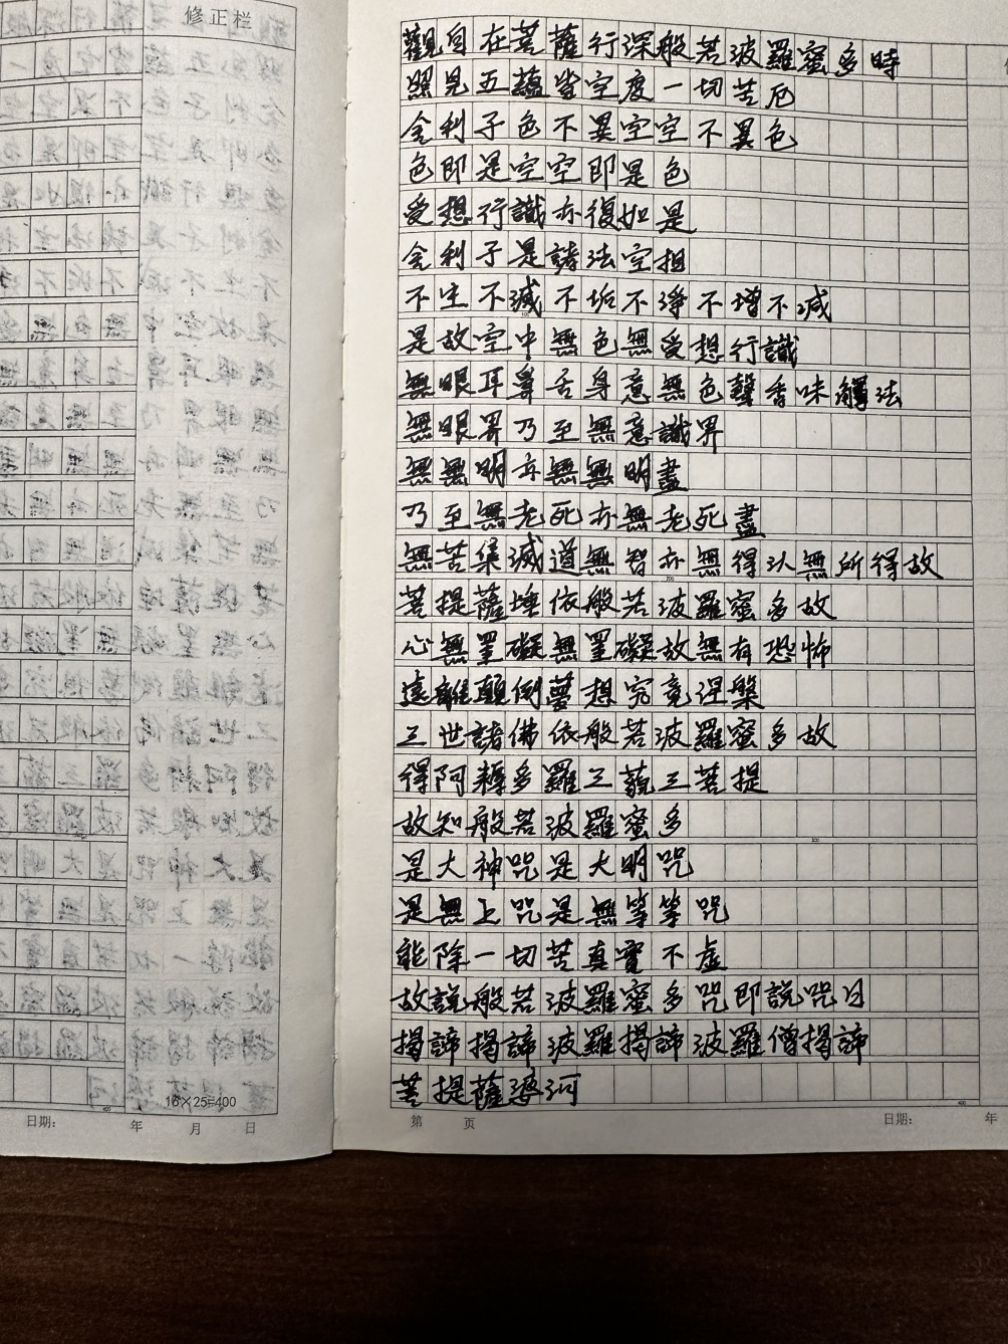 修正栏
觀自在菩薩行深般若波羅蜜多時
照見五蘊皆空度一切苦厄
舍利子色不異空空不異色
色即是空空即是色
受想行識亦復如是
舍利子是諸法空相
不生不滅不垢不淨不增不減
是故空中無色無受想行識
無眼耳鼻舌身意無色聲香味觸法
無眼界乃至無意識界
無無明亦無無明盡
乃至無老死亦無老死盡
無苦集滅道無智亦無得以無所得故
菩提薩埵依般若波羅蜜多故
心無罣礙無罣礙故無有恐怖
遠離顛倒夢想究竟涅槃
三世諸佛依般若波羅蜜多故
得阿耨多羅三藐三菩提
故知般若波羅蜜多
是大神咒是大明咒
是無上咒是無等等咒
能除一切苦真實不虛
故說般若波羅蜜多咒即說咒曰
揭諦揭諦波羅揭諦波羅僧揭諦
菩提薩婆訶
16×25=400
日期: 年 月 日
第 页 日期: 年